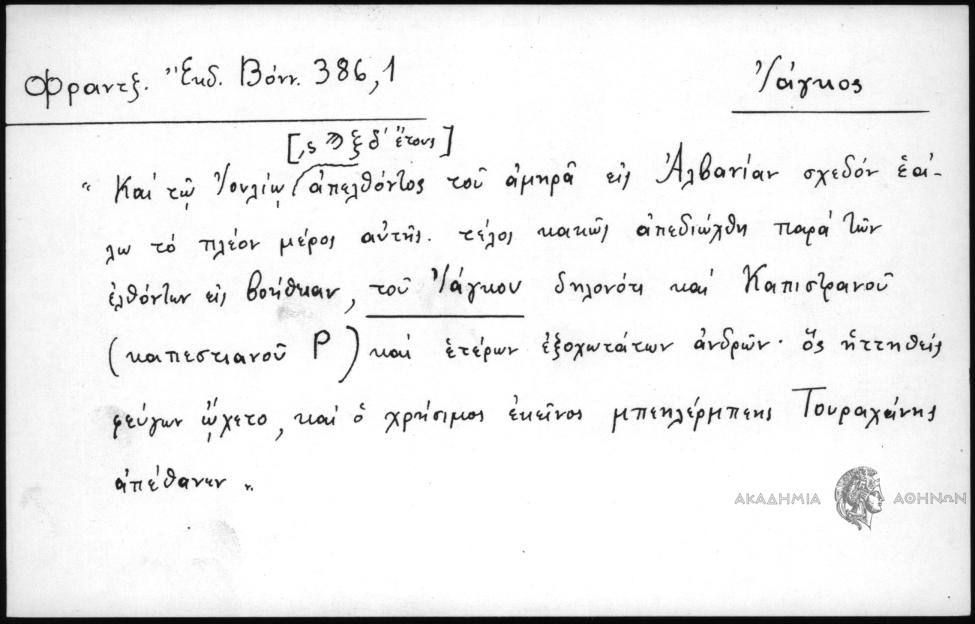 Φραντζ. Ἔκδ. Βόνν. 386,1
Ἰάγκος
[,ϛ ϡ ξ δ' ἔτους]
"Καί τῷ Ἰουλίῳ ἀπελθόντος τοῦ ἀμηρᾶ εἰς Ἀλβανίαν σχεδόν ἑά-
λω τό πλέον μέρος αὐτῆς. τέλος κακῶς ἀπεδιώχθη παρά τῶν
ἐλθόντων εἰς βοήθειαν, τοῦ Ἰάγκου δηλονότι καί Καπιστρανοῦ
(καπεστιανοῦ P) καί ἑτέρων ἐξοχωτάτων ἀνδρῶν· ὅς ἡττηθείς
φεύγων ᾤχετο, καί ὁ χρήσιμος ἐκεῖνος μπεηλέρμπεης Τουραχάνης
ἀπέθανεν".
ΑΚΑΔΗΜΙΑ ΑΘΗΝΩΝ